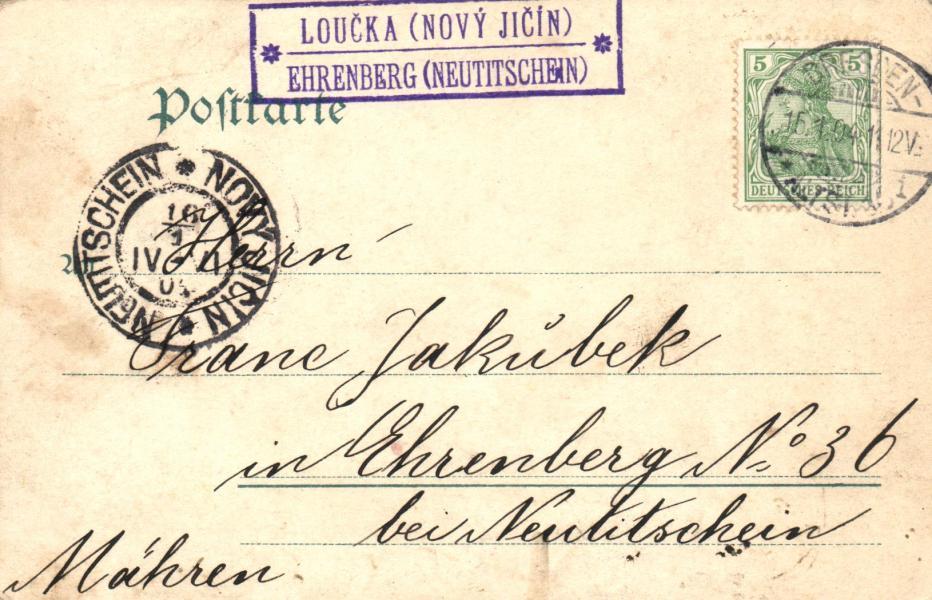 LOUČKA (NOVÝ JIČÍN)
EHRENBERG (NEUTITSCHEIN)
Postkarte
5 5
DEUTSCHES REICH
15.1.04.11-12V.
1
NEUTITSCHEIN * NOVÝ JIČÍN *
An
Herrn
Franc Jakůbek
in Ehrenberg No 36
bei Neutitschein
Mähren